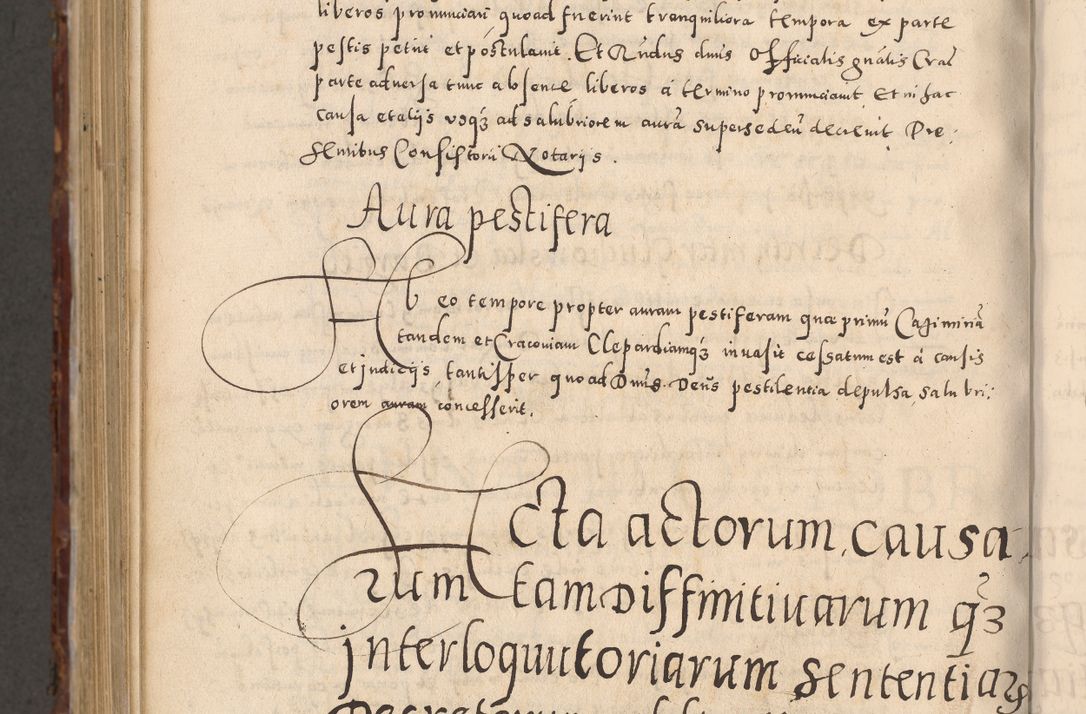 liberos pronunciari quoad fuerint tranquiliora tempora ex parte
pestis petiit et postulavit. Et Rndus dnus Officialis gnalis Crac
parte adversa tunc absente liberos a termino pronunciavit Et in hac
causa et aliis usq; ad salubriorem aura supersedeu decrevit Pre:
sentibus Consistorii Notariis.
Aura pestifera
Ab eo tempore propter auram pestiferam que primu Casimiria
tandem et Cracoviam Clepardiamq; invasit cessatum est a causis
et judiciis tantisper quoad Dnus Deus pestilentia depulsa salubri:
orem auram concesserit.
Acta actorum, causa,
rum tam Diffinitivarum q;
interloquutoriarum sententiar
Decretorum